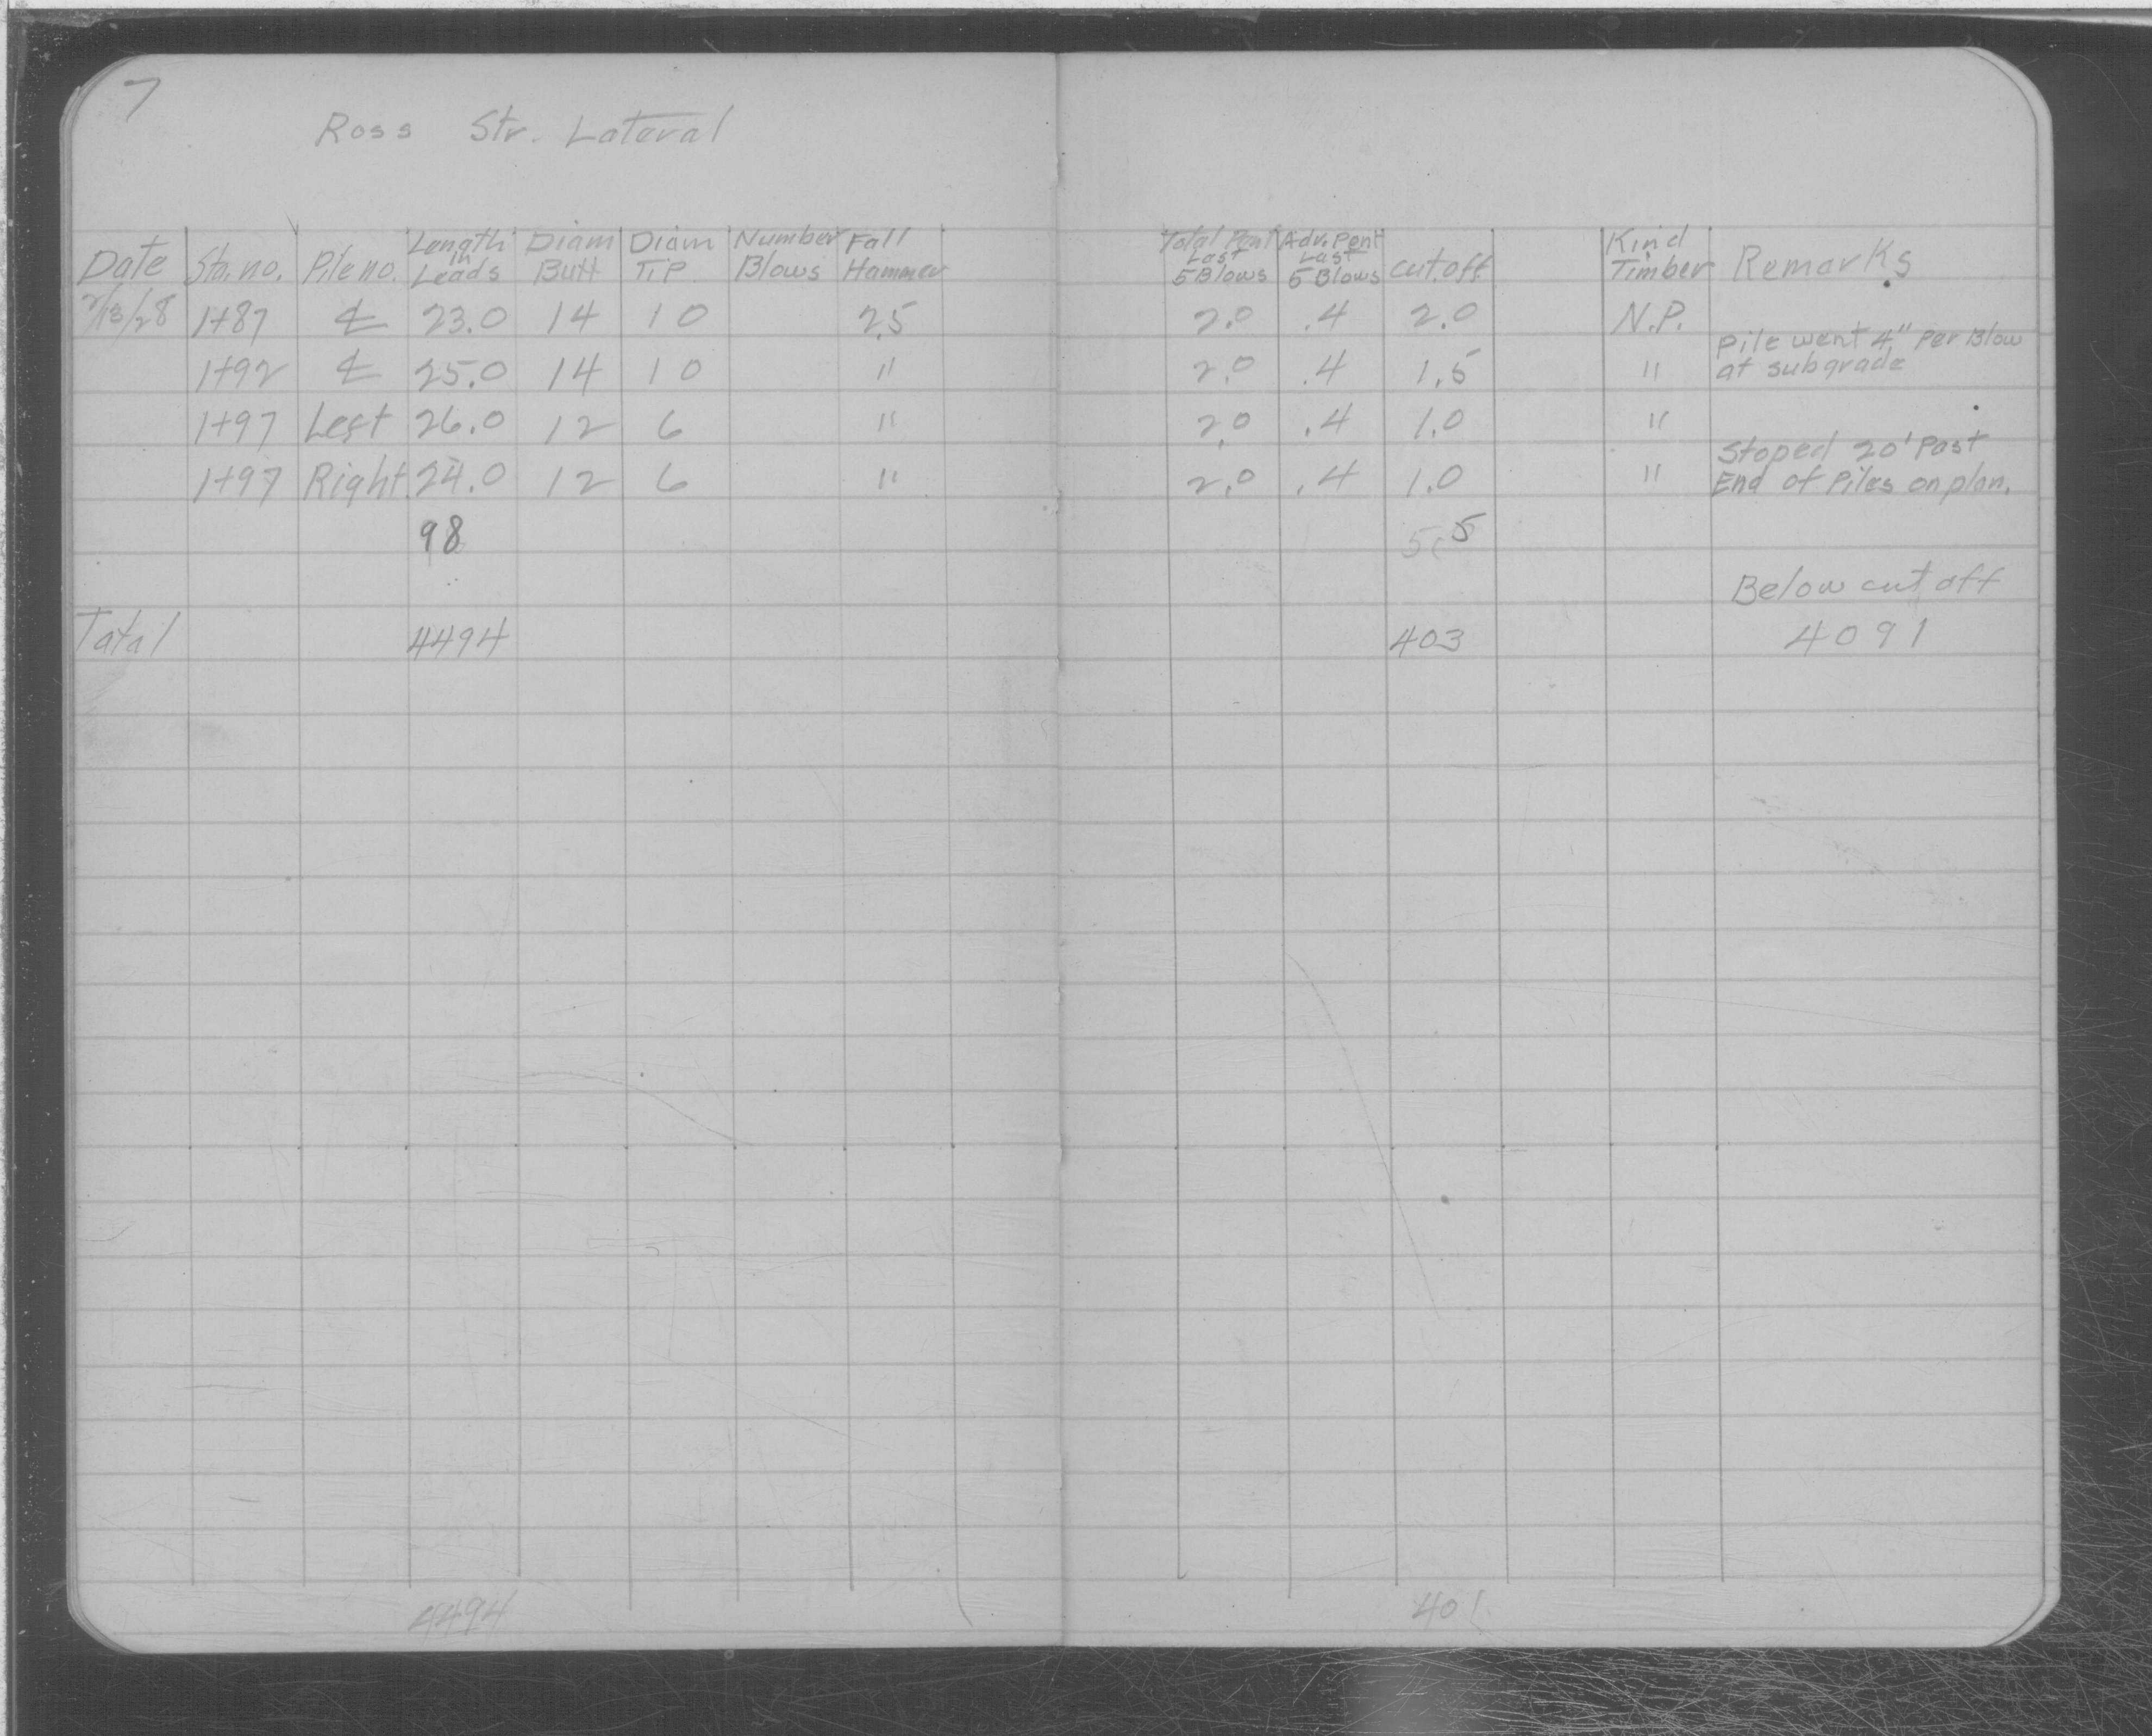 7
Ross Str. Lateral
Date Sta. no. Pile no. Length in Leads Diam Butt Diam Tip Number Blows Fall Hammer Total Pent Last 5 Blows Adv. Pent Last 5 Blows cut off Kind Timber Remarks
2/13/28 1+87 ℄ 23.0 14 10 25 2.0 .4 2.0 N.P.
1+92 ℄ 25.0 14 10 " 2.0 .4 1.5 " Pile went 4" Per Blow at subgrade
1+97 Left 26.0 12 6 " 2.0 .4 1.0 "
1+97 Right 24.0 12 6 " 2.0 .4 1.0 " Stoped 20' Past End of Piles on plan.
98 5
Below cut off
Total 4494 403 4091
4494 401